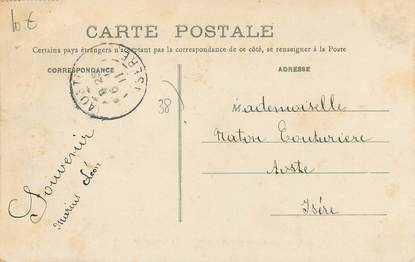 10 €
CARTE POSTALE
Certains pays étrangers n'acceptant pas la correspondance de ce côté, se renseigner à la Poste
CORRESPONDANCE
ADRESSE
38
Mademoiselle
Naton Couturiere
Aoste
Isére
Souvenir
Marius Léon